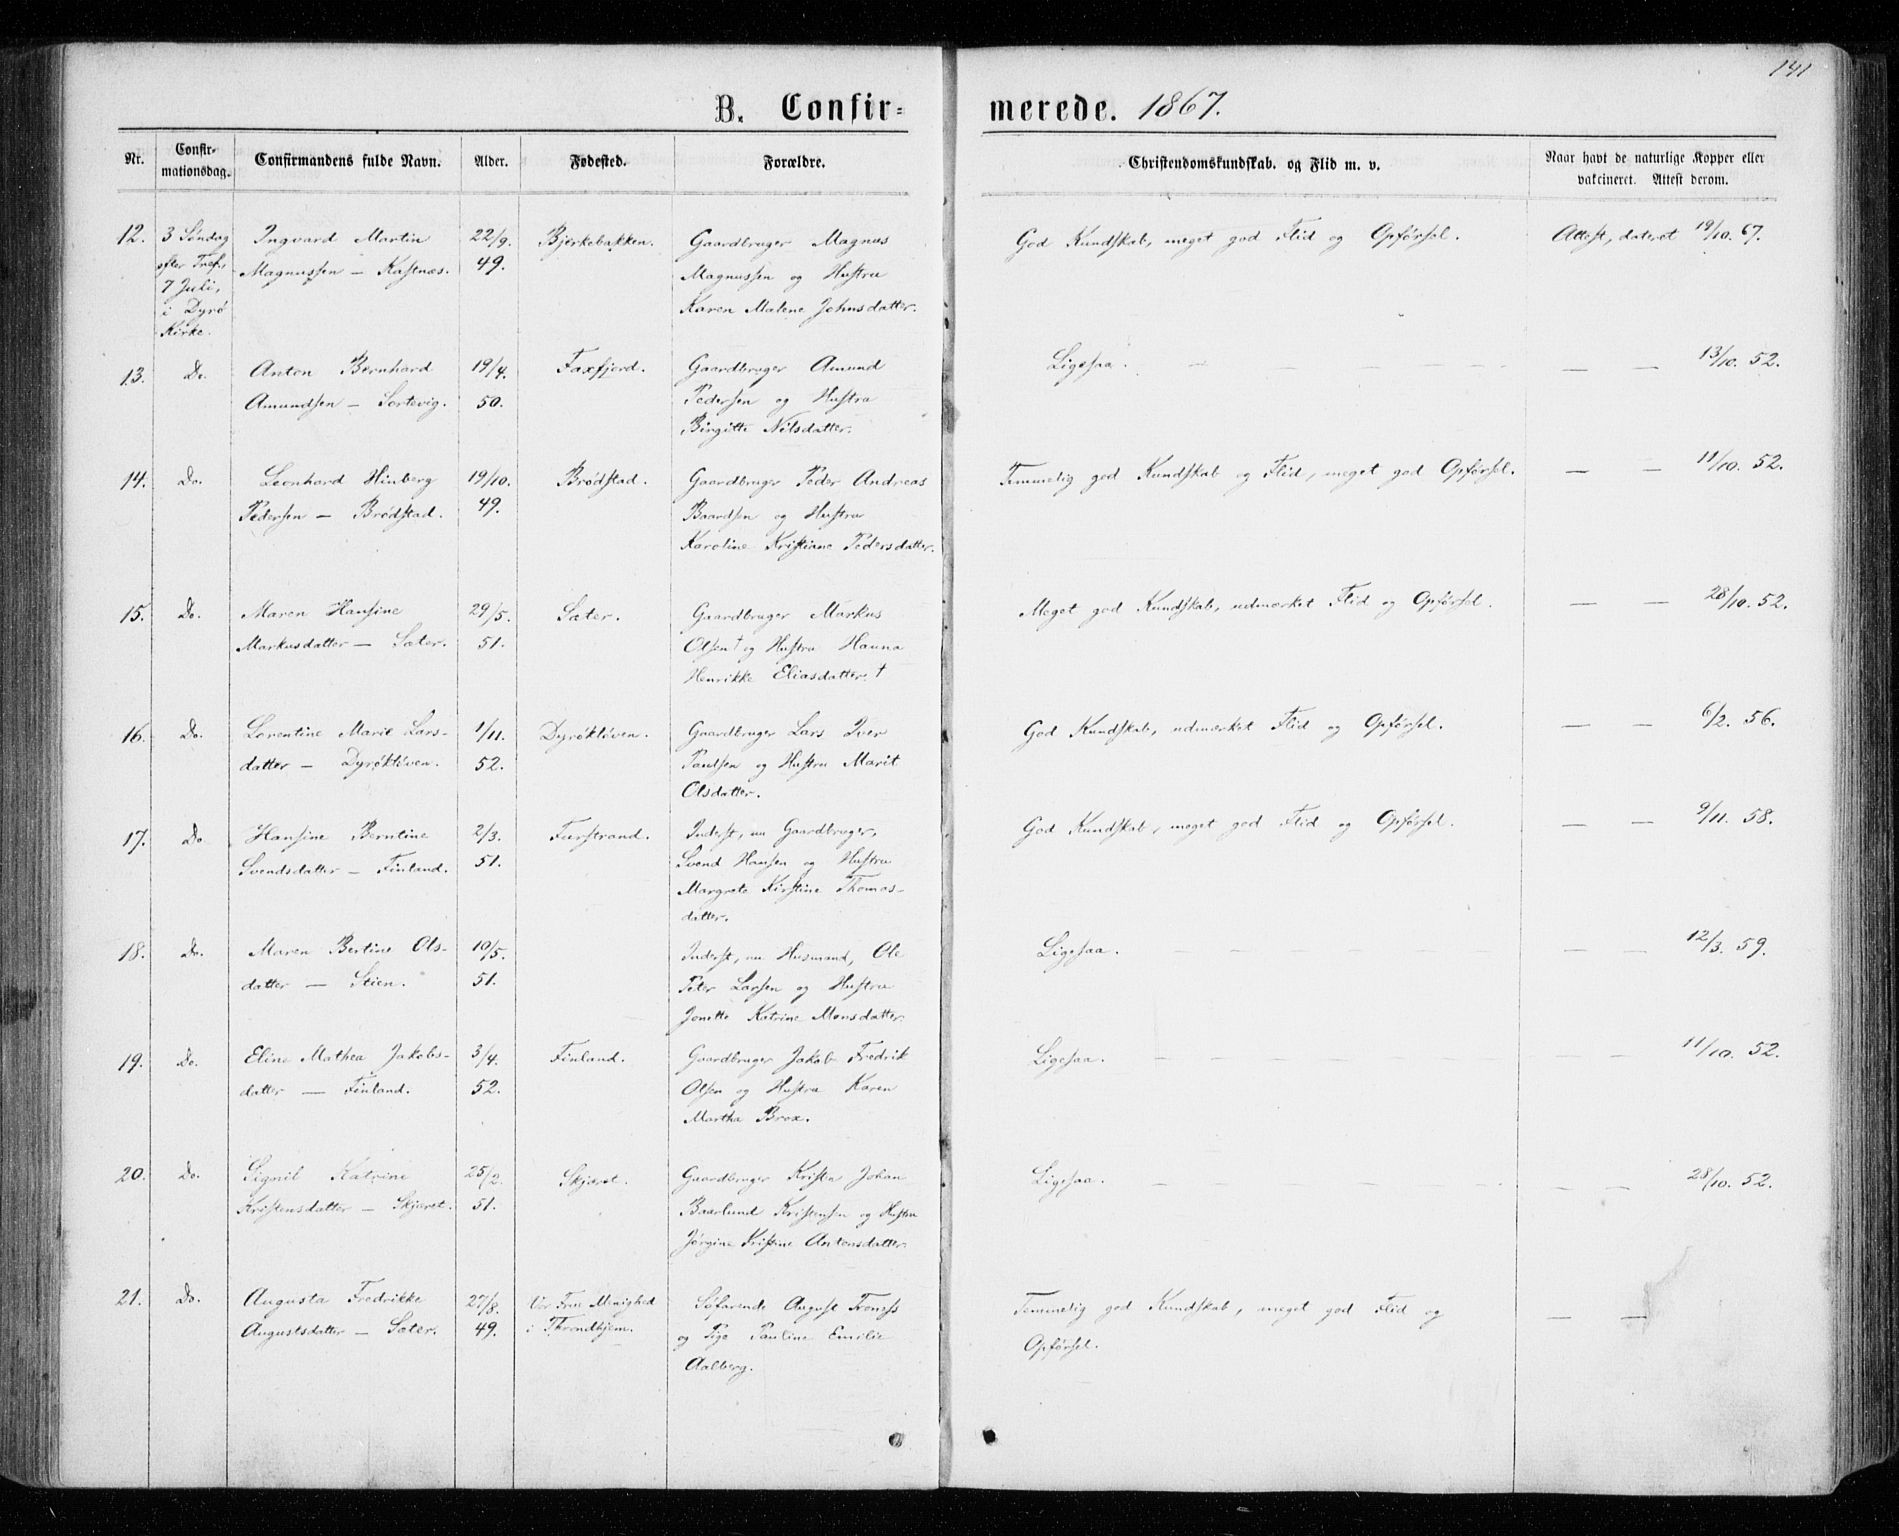 141
B. Confir-
merede. 1867.
Nr.
Confir-
mationsdag.
Confirmandens fulde Navn.
Alder.
Fødested.
Forældre.
Christendomskundskab. og Flid m. v.
Naar havt de naturlige Kopper eller
vakcineret. Attest derom.
12.
3 Søndag
efter Tref.
7 Juli,
i Dyrø
Kirke.
Ingvard Martin
Magnussen — Kastnæs.
22/9.
49.
Bjerkebakken.
Gaardbruger Magnus
Magnussen og Hustru
Karen Malene Johnsdatter.
God Kundskab, meget god Flid og Opførsel.
Attest, dateret 19/10. 67.
13.
Do.
Anton Bernhard
Amundsen — Sortevig.
19/4.
50.
Faxfjord.
Gaardbruger Amund
Pedersen og Hustru
Birgitte Nilsdatter.
Ligesaa. — — — — —
— — 13/10. 52.
14.
Do.
Leonhard Hinberg
Pedersen — Brødstad.
19/10.
49.
Brødstad.
Gaardbruger Peder Andreas
Baardsen og Hustru
Karoline Kristiane Pedersdatter.
Temmelig god Kundskab og Flid, meget god Opførsel.
— — 11/10. 52.
15.
Do.
Maren Hansine
Markusdatter — Sæter.
29/5.
51.
Sæter.
Gaardbruger Markus
Olsen † og Hustru Hanna
Henrikke Eliasdatter. †
Meget god Kundskab, udmærket Flid og Opførsel.
— — 28/10. 52.
16.
Do.
Lorentine Marie Lars-
datter — Dyrøkløven.
1/11.
52.
Dyrøkløven.
Gaardbruger Lars Iver
Paulsen og Hustru Marit
Olsdatter.
God Kundskab, udmærket Flid og Opførsel.
— — 6/2. 56.
17.
Do.
Hansine Berntine
Svendsdatter — Finland.
2/3.
51.
Furstrand.
Inderst, nu Gaardbruger,
Svend Hansen og Hustru
Margrete Kirstine Thomas-
datter.
God Kundskab, meget god Flid og Opførsel.
— — 9/11. 58.
18.
Do.
Maren Bertine Ols-
datter — Stien.
10/5.
51.
Inderst, nu Husmand, Ole
Peter Larsen og Hustru
Jonette Katrine Monsdatter.
Ligesaa. — — — — —
— — 12/3. 59.
19.
Do.
Eline Mathea Jakobs-
datter — Finland.
3/4.
52.
Finland.
Gaardbruger Jakob Fredrik
Olsen og Hustru Karen
Martha Brox.
Ligesaa. — — — — —
— — 11/10. 52.
20.
Do.
Signil Katrine
Kristensdatter — Skjæret.
25/2.
51.
Skjæret.
Gaardbruger Kristen Johan
Baarlund Kristensen og Hustru
Jørgine Kristine Antonsdatter.
Ligesaa. — — — — —
— — 28/10. 52.
21.
Do.
Augusta Fredrikke
Augustsdatter — Sæter.
27/8.
49.
Vor Frue Menighed
i Throndhjem.
Søfarende August Troness
og Pige Pauline Emilie
Aalberg.
Temmelig god Kundskab, meget god Flid og
Opførsel.
— —